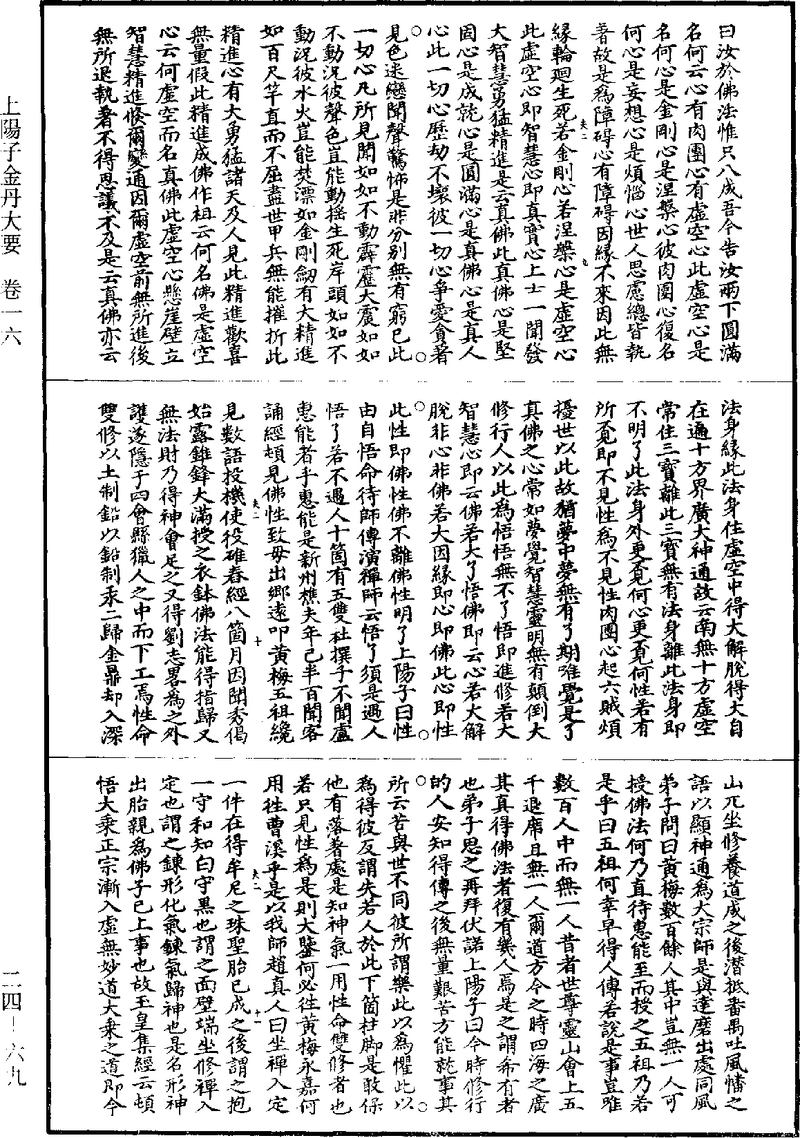 曰汝於佛法惟只八成吾今告汝兩下圓滿
名何云心有肉團心有虛空心此虛空心是
名何心是金剛心是涅槃心彼肉團心復名
何心是妄想心是煩惱心世人思慮總皆執
著故是為障碍心有障碍因緣不來因此無
緣輪迴生死若金剛心若涅槃心是虛空心
此虛空心即智慧心即真實心上士一聞發
大智慧勇猛精進是云真佛此真佛心是堅
固心是成就心是圓滿心是真佛心是真人
心此一切心歷劫不壞彼一切心爭愛貪著
見色迷戀聞聲驚怖是非分別無有窮已此
一切心凡所見聞如如不動霹靂大震如如
不動況彼聲色豈能動搖生死岸頭如如不
動況彼水火豈能焚漂如金剛劒有大精進
如百尺竿直而不屈盡世甲兵無能摧折此
精進心有大勇猛諸天及人見此精進歡喜
無量假此精進成佛作祖云何名佛是虛空
心云何虛空而名真佛此虛空心懸崖壁立
智慧精進倐爾變通因爾虛空前無所進後
無所退執著不得思議不及是云真佛亦云
法身緣此法身住虛空中得大解脫得大自
在遍十方界廣大神通故云南無十方虛空
常住三寶離此三寶無有法身離此法身即
不明了此法身外更覓何心更覓何性若有
所覓即不見性為不見性肉團心起六賊煩
擾世以此故猶夢中夢無有了期唯覺是了
真佛之心常如夢覺智慧靈明無有顛倒大
修行人以此為悟悟無不了悟即進修若大
智慧心即云佛若大了悟佛即云心若大解
脫非心非佛若大因緣即心即佛此心即性
此性即佛性佛不離佛性明了上陽子曰性
由自悟命待師傳演禪師云悟了須是遇人
悟了若不遇人十箇有五雙杜撰子不聞盧
惠能者乎惠能是新州樵夫年已半百聞客
誦經頓見佛性致母出鄉遠叩黃梅五祖纔
見數語投機使役碓舂經八箇月因聞秀偈
始露錐鋒大滿授之衣鉢佛法能得指歸又
無法財乃得神會足之又得劉志畧為之外
護遂隱于四會縣獵人之中而下工焉性命
雙修以土制鉛以鉛制汞二歸金鼎却入深
山兀坐修養道成之後潛抵番禺吐風幡之
語以顯神通為大宗師是與達磨出處同風
弟子問曰黃梅數百餘人其中豈無一人可
授佛法何乃直待惠能至而授之五祖乃若
是乎曰五祖何幸早得人傳若說是事豈唯
數百人中而無一人昔者世尊靈山會上五
千退席且無一人爾道方今之時四海之廣
其真得佛法者復有幾人焉是之謂希有者
也弟子思之再拜伏諾上陽子曰今時修行
的人安知得傳之後無量艱苦方能就事其
所云苦與世不同彼所謂樂此以為懼此以
為得彼反謂失若人於此下箇柱脚是敢保
他有落著處是知神氣一用性命雙修者也
若只見性為是則大鑒何必往黃梅永嘉何
用往曹溪乎是以我師趙真人曰坐禪入定
一件在得牟尼之珠聖胎已成之後謂之抱
一守和知白守黑也謂之面壁端坐修禪入
定也謂之鍊形化氣鍊氣歸神也是名形神
出胎親為佛子已上事也故玉皇集經云頓
悟大乘正宗漸入虛無妙道大乘之道即今
上陽子金丹大要 卷一六
二四—六九